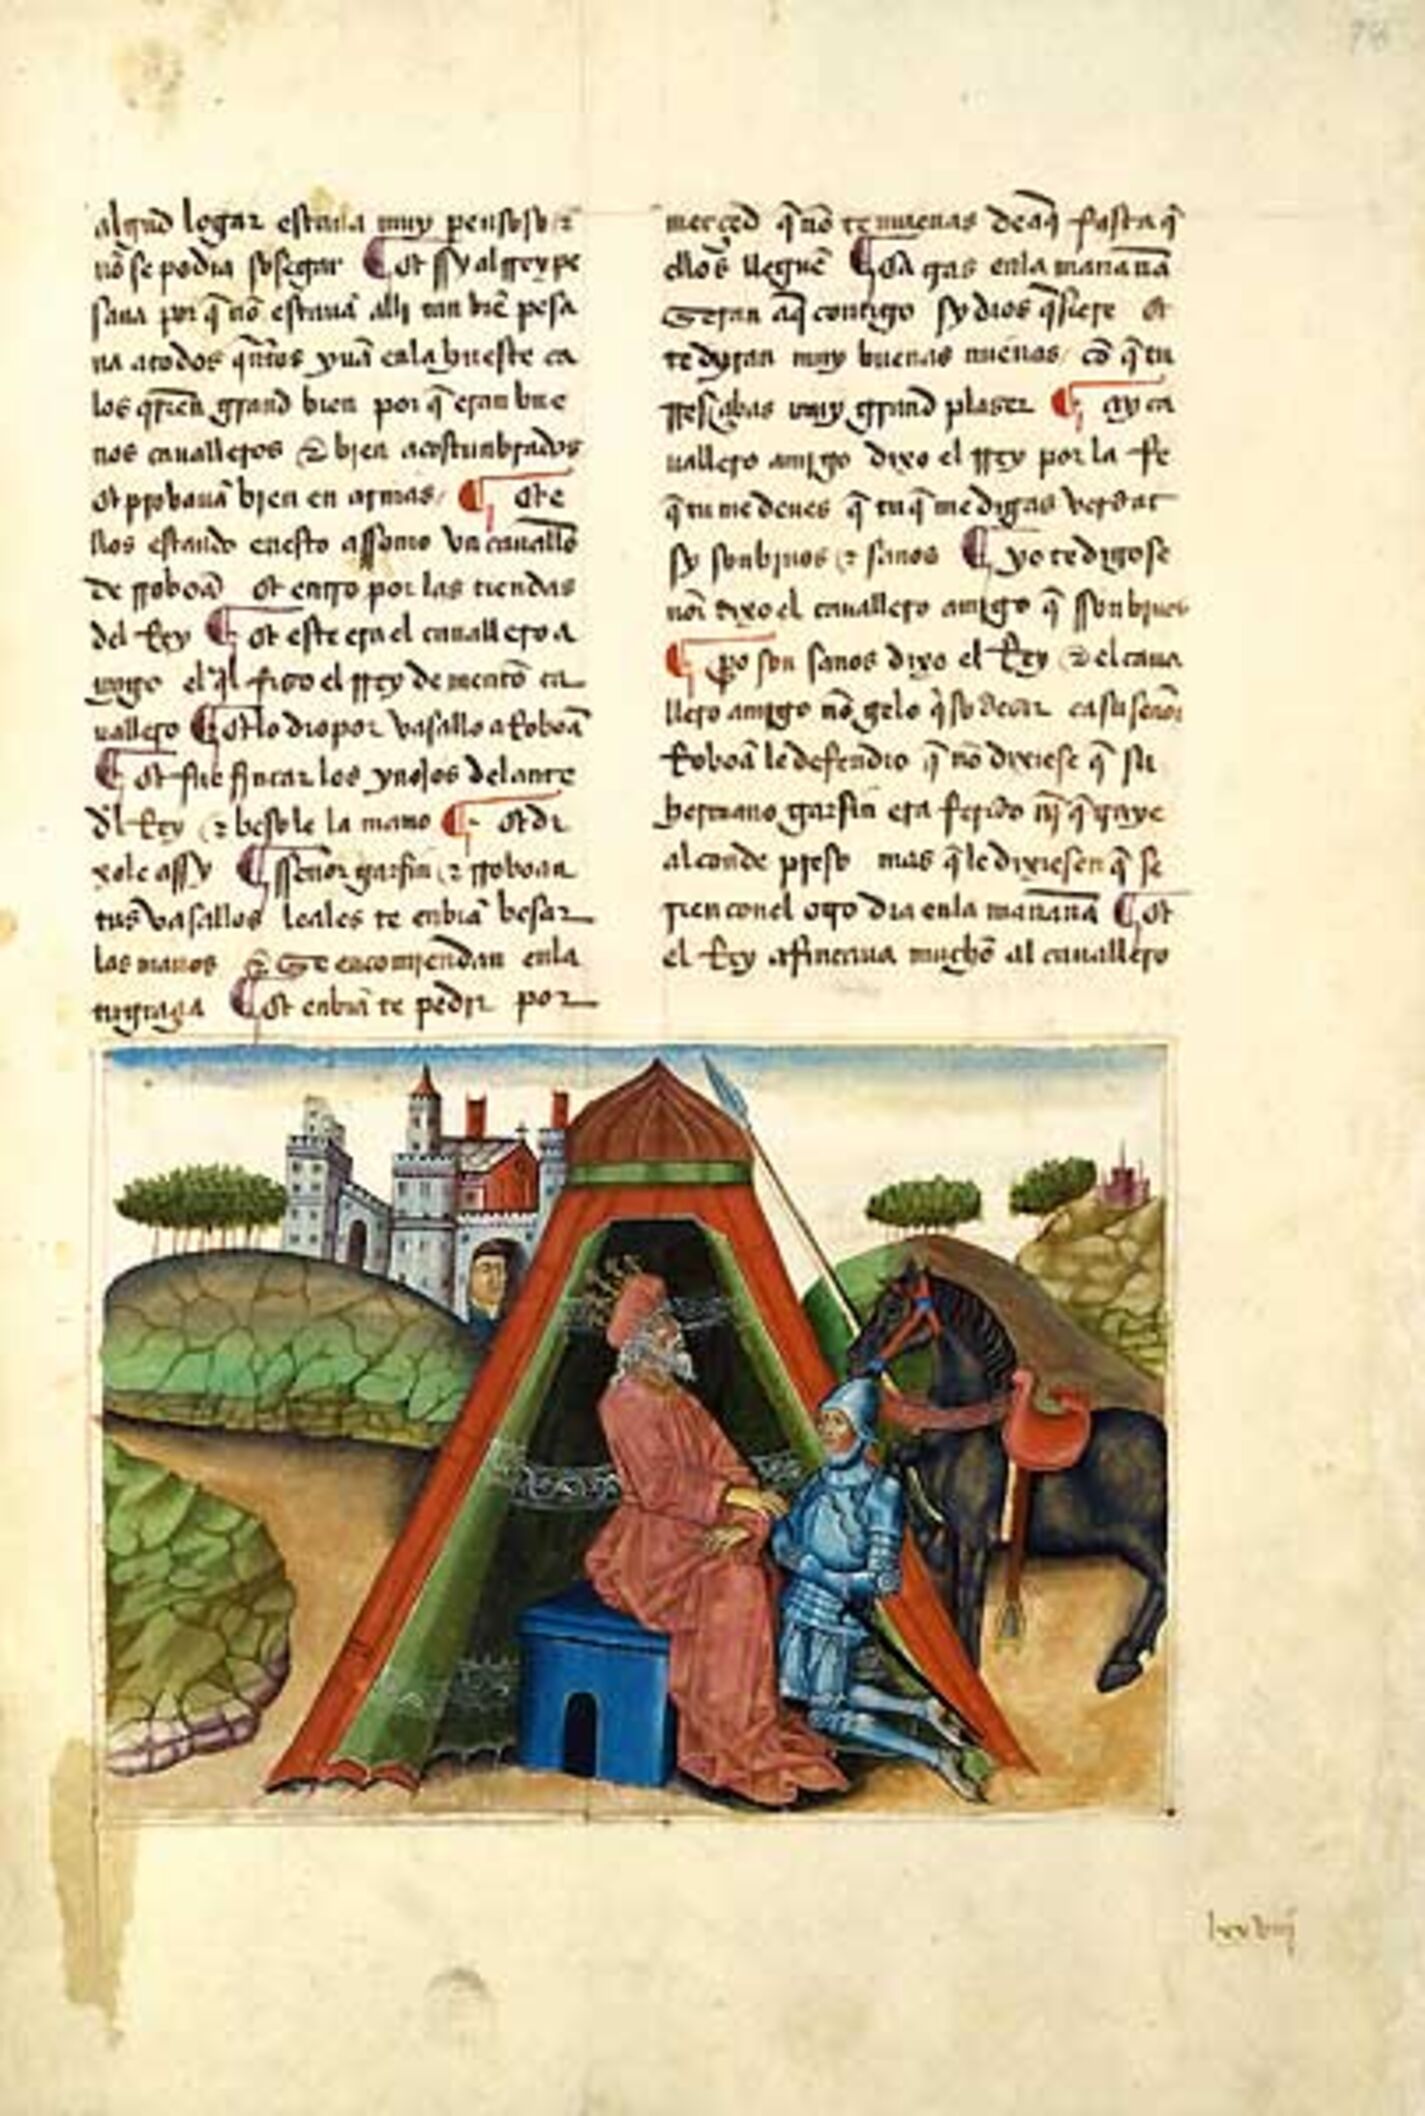 algund logar estaua muy pensoso ⁊
nõ se podia sosegar ¶ Et sy al rrey pe
saua por q̃ nõ estauã alli tan biẽ pesa
ua a todos q̃ntos yuã en la hueste ca
los q̃rien grand bien por q̃ eran bue
nos caualleros ⁊ bien acostunbrados
Et prouauã bien en armas ¶ Et e
llos estando en esto assomo vn cauallo
de rroboã Et entro por las tiendas
del Rey ¶ Et este era el cauallero a
migo el q̃l fizo el rrey de mentõ ca
uallero ¶ Et lo dio por vasallo a Roboã
¶ Et fue fincar los ynojos delante
d̃l Rey ⁊ besole la mano ¶ Et di
xole assy ¶ Sseñor garfin ⁊ rroboan
tus vasallos leales te enbiã besar
las manos ⁊ Se encomiendan en la
tu graçia ¶ Et enbiã te pedir por
merçed q̃ nõ te mueuas de aq̃ fasta q̃
ellos lleguẽ ¶ Ca cras en la mañana
Seran aq̃ contigo sy dios q̃siere Et
te dyran muy buenas nueuas cõ q̃ tu
rresçibas muy grand plaser ¶ Ay ca
uallero amigo dixo el rrey por la fe
q̃ tu me deues q̃ tu q̃ me digas verdat
sy son biuos ⁊ sanos ¶ yo te digo se
ñor dixo el cauallero amigo q̃ sson biuos
¶ po son sanos dixo el Rey ⁊ el caua
llero amigo nõ gelo q̃so desir ca su señor
Roboã le defendio q̃ nõ dixiese q̃ su
hermano garfin era ferido nĩ q̃ traye
al conde preso mas q̃ le dixiesen q̃ se
rien con el otro dia en la mañana ¶ Et
el Rey afincaua mucho al cauallero
lxxviij